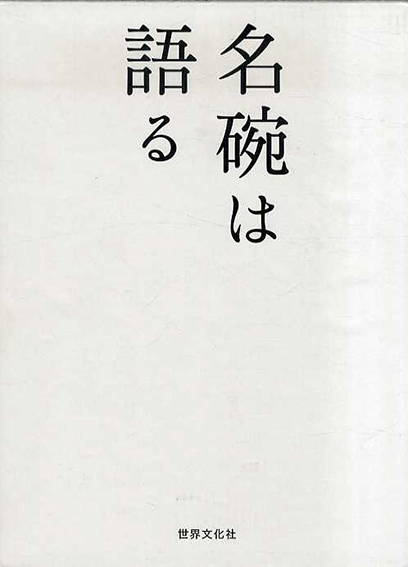 名碗は
語る
世界文化社